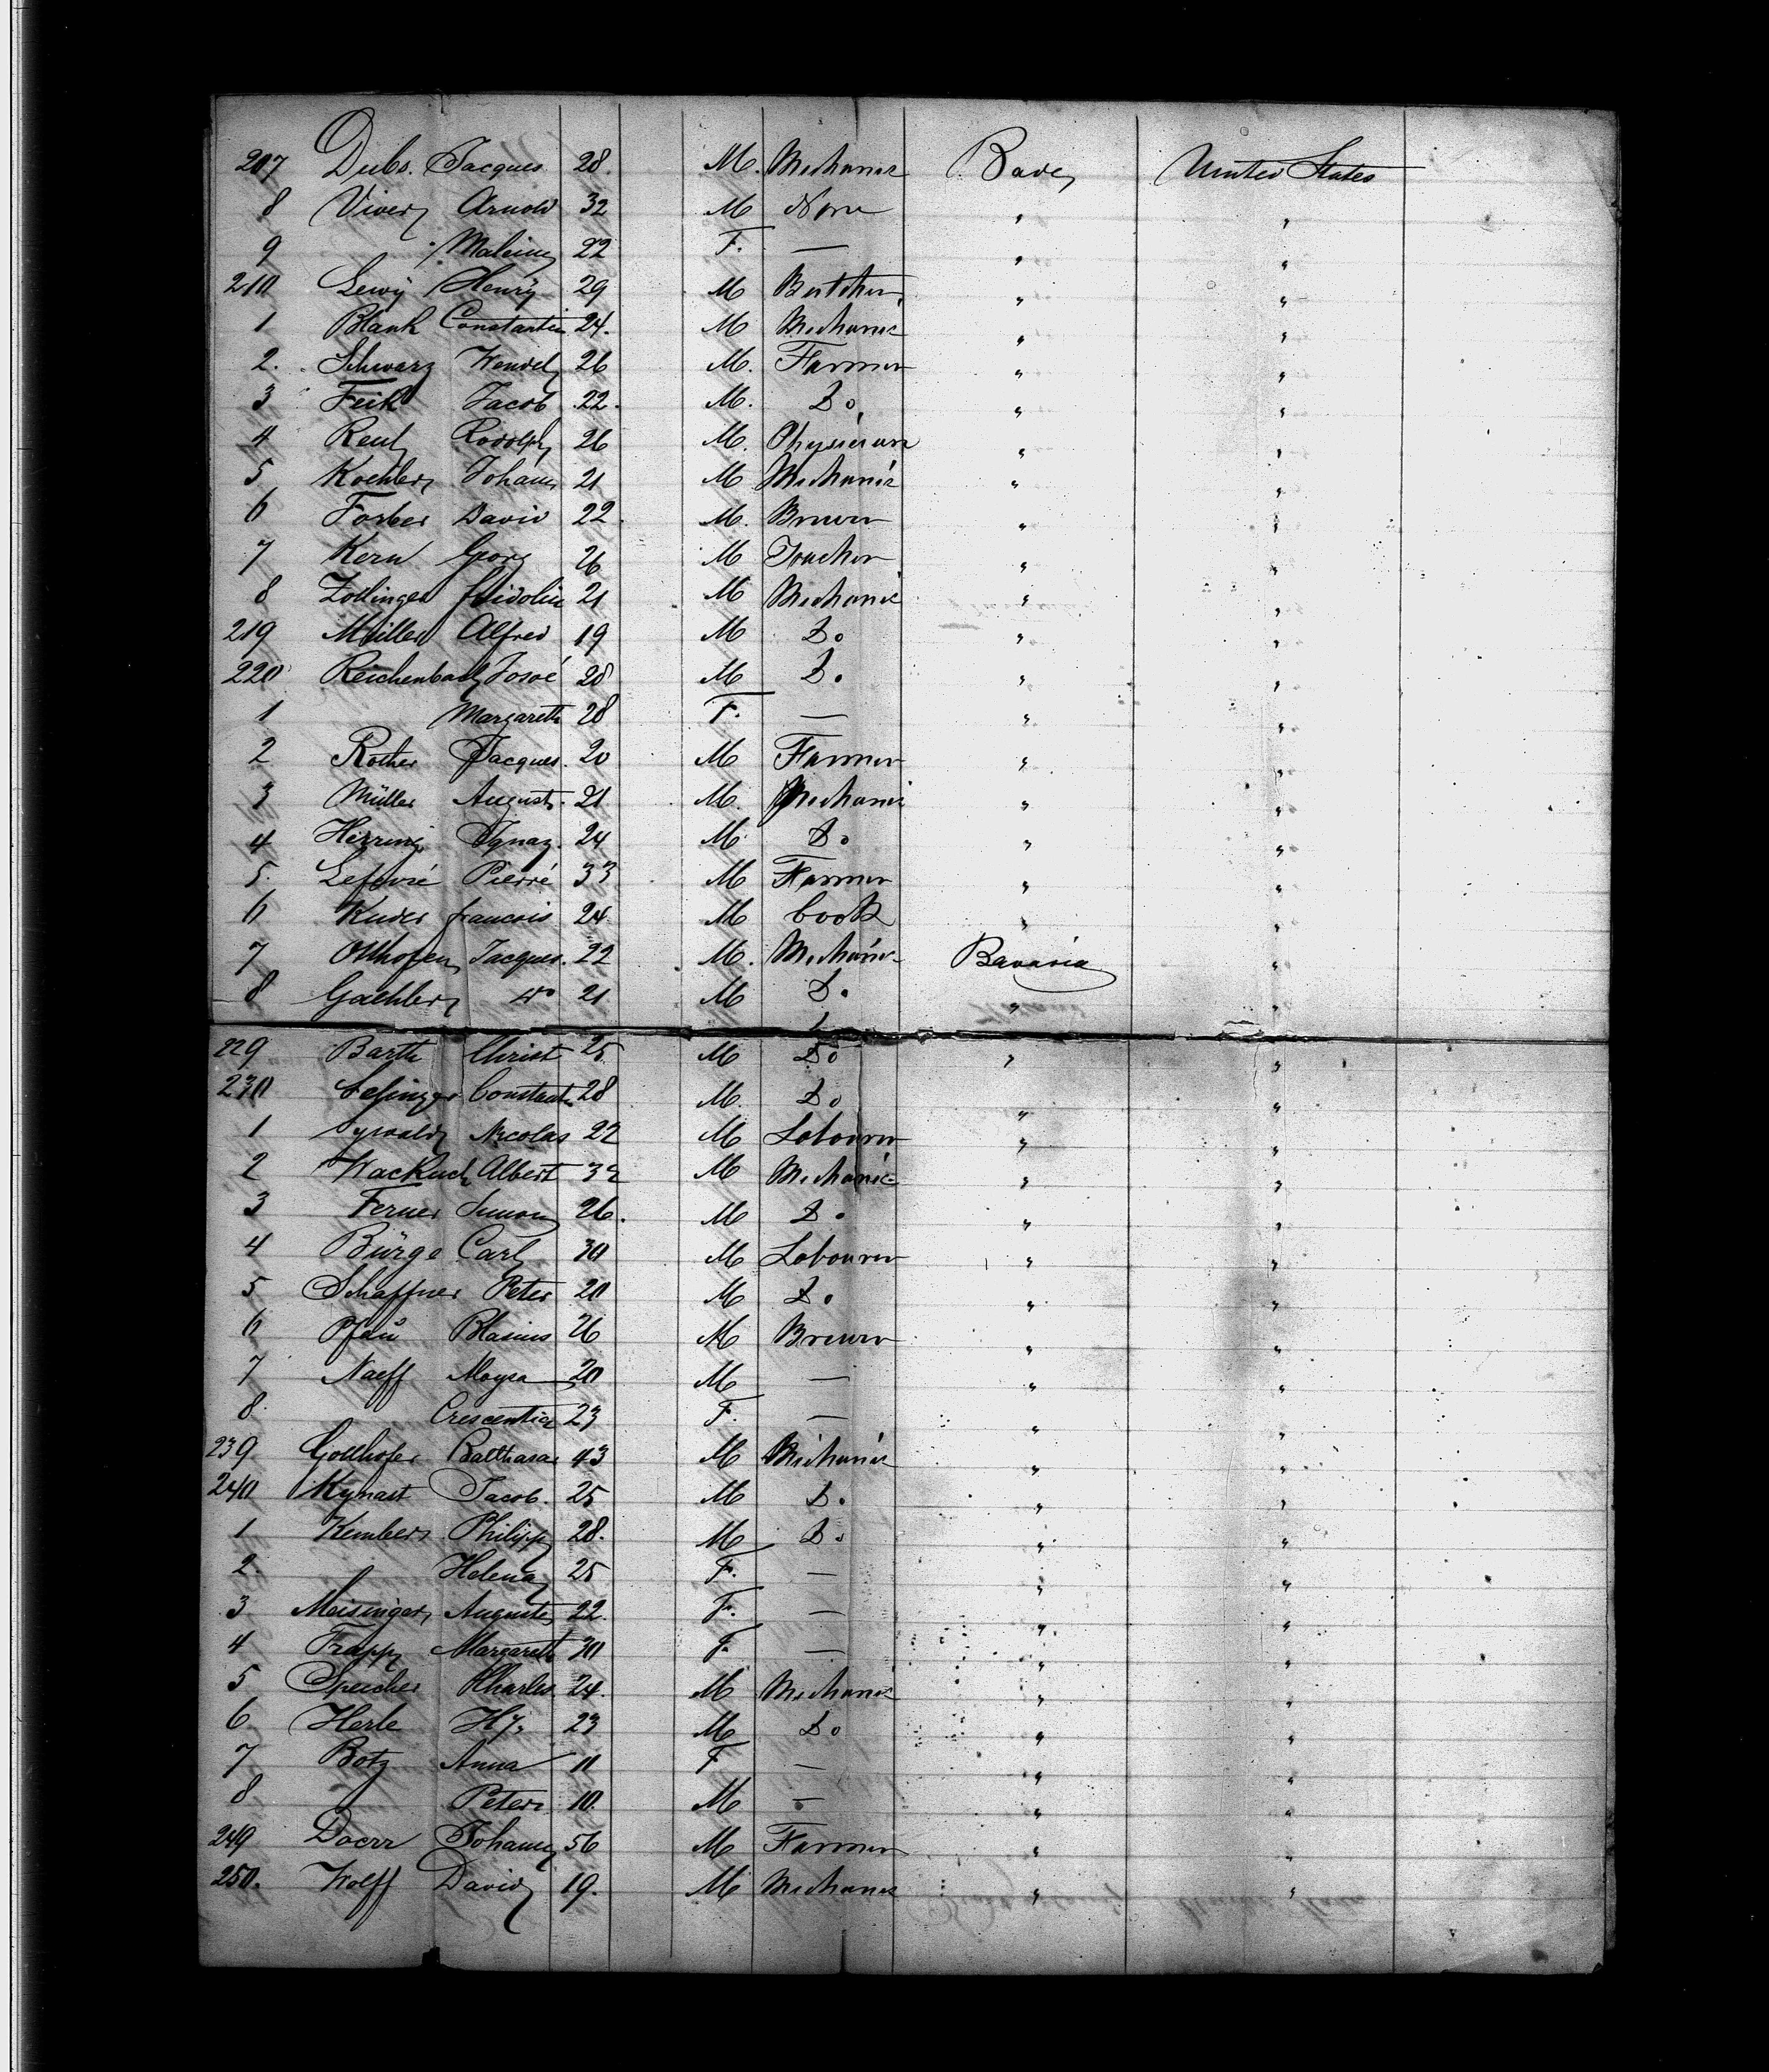 207 Dubs. Jacques 28. M. Mechanic Baden United States
8 Arnold 32 M None " "
9 22 F. — " "
210 Lewÿ Henrÿ 29 M Butcher " "
1 Blank Constantin 24. M Mechanic " "
2. Schwarz Wendel 26 M. Farmer " "
3 Feik Jacob 22. M. Do " "
4 Rodolph 26 M. Physician " "
5 Koehler Johann 21 M Mechanic " "
6 David 22. M. Brewer " "
7 Kern Georg 26 M " "
8 Zollinger fridolin 21 M Mechanic " "
219 Müller Alfred 19 M Do " "
220 Reichenbach Josué 28 M Do " "
1 Margareth 28 F. — " "
2 Rother Jacques. 20 M Farmer " "
3 Müller August. 21 M. Mechanic " "
4 Ignaz. 24 M Do " "
5. Pierré 33 M Farmer " "
6 Kuder francois 24. M Cook " "
7 Jacques. 22 M. Mechanic Bavaria "
8 Gaehler do 21 M Do " "
229 Barth Christ 25 M Do " "
230 Constantin 28 M. Do " "
1 Nicolas 22 M Labourer " "
2 Albert 32 M Mechanic " "
3 Ferner Simon 26. M Do " "
4 Bürge Carl 30 M Labourer " "
5 Schaffner Peter 20 M Do " "
6 Pfau Blasius 26 M Brewer " "
7 Naeff 20 M — " "
8. Crescentia 23 F. — " "
239. Gollhofer Balthasar 43 M Mechanic " "
240 Kynast Jacob. 25 M Do " "
1 Philipp 28. M Do " "
2. Helena 25 F. — " "
3 Meisinger Auguste 22. F. — " "
4 Trapp Margareth 30 F. — " "
5 Speicher Charles 24. M Mechanic " "
6 Herle Hy. 23 M Do " "
7 Botz Anna 11 F — " "
8 Peter 10. M — " "
249 Doerr Johann 56 M Farmer " "
250. Wolff David 19. M Mechanic " "